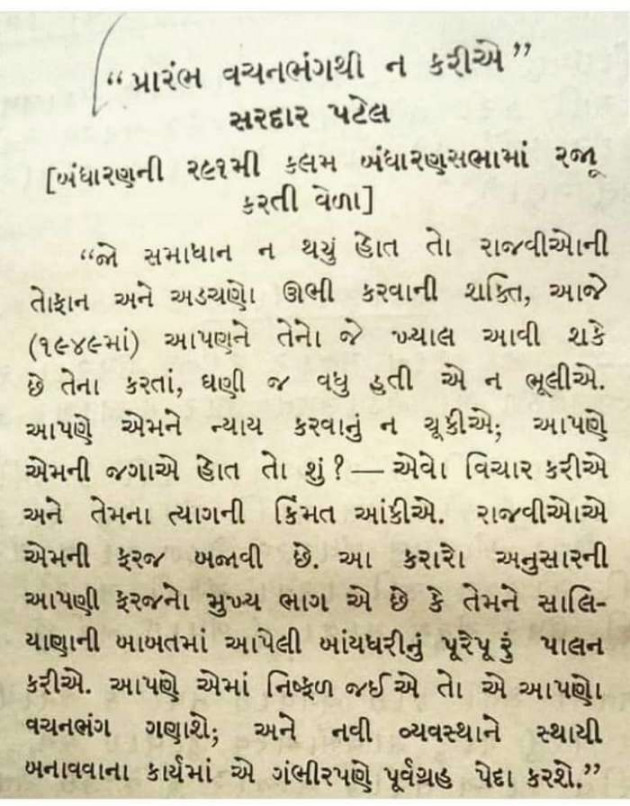 “પ્રારંભ વચનભંગથી ન કરીએ”
સરદાર પટેલ
[બંધારણની ૨૯૧મી કલમ બંધારણસભામાં રજૂ
કરતી વેળા]
“જો સમાધાન ન થયું હોત તો રાજવીઓની
તોફાન અને અડચણો ઊભી કરવાની શક્તિ, આજે
(૧૯૪૯માં) આપણને તેનો જે ખ્યાલ આવી શકે
છે તેના કરતાં, ઘણી જ વધુ હતી એ ન ભૂલીએ.
આપણે એમને ન્યાય કરવાનું ન ચૂકીએ; આપણે
એમની જગાએ હોત તો શું? — એવો વિચાર કરીએ
અને તેમના ત્યાગની કિંમત આંકીએ. રાજવીઓએ
એમની ફરજ બજાવી છે. આ કરારો અનુસારની
આપણી ફરજનો મુખ્ય ભાગ એ છે કે તેમને સાલિ-
યાણાની બાબતમાં આપેલી બાંયધરીનું પૂરેપૂરું પાલન
કરીએ. આપણે એમાં નિષ્ફળ જઈએ તો એ આપણો
વચનભંગ ગણાશે; અને નવી વ્યવસ્થાને સ્થાયી
બનાવવાના કાર્યમાં એ ગંભીરપણે પૂર્વગ્રહ પેદા કરશે.”